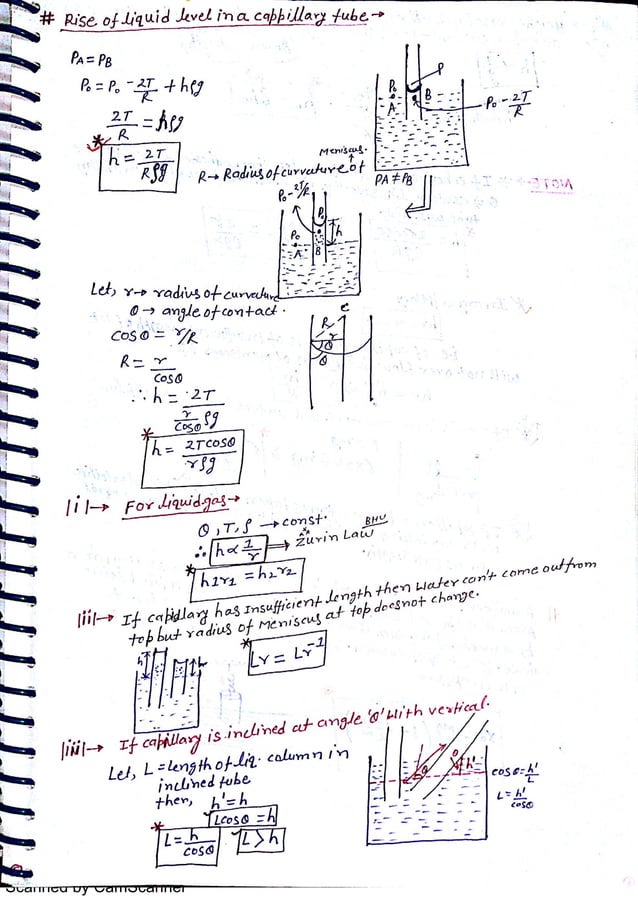 # Rise of liquid level in a cappillary tube→
P_A = P_B
P₀ = P₀ - 2T/R + hρg
2T/R = hρg
* h = 2T/Rρg
P
P₀
A
B
P₀ - 2T/R
P_A ≠ P_B
Meniscus.
R→ Radius of curvature of
P₀ - 2T/R
P₀
h
P₀
A
B
Let, r→ radius of curvature
θ → angle of contact.
cosθ = r/R
R = r/cosθ
∴ h = 2T/(r/cosθ ρg)
* h = 2Tcosθ/rρg
c
R
r
θ
θ
|i|→ For liquid gas→
θ, T, ρ → const.
∴ h ∝ 1/r ⇒ Zurin Law BHU
* h1r1 = h2r2
|ii|→ If capillary has Insufficient length then water can't come out from
top but radius of Meniscus at top does not change.
* Lr = Lr⁻¹
h
|iii|→ If capillary is inclined at angle 'θ' with vertical.
Let, L = length of liq. column in
inclined tube
then, h' = h
Lcosθ = h
* L = h/cosθ L > h
θ
θ
h'
cosθ = h'/L
L = h'/cosθ
Scanned by CamScanner